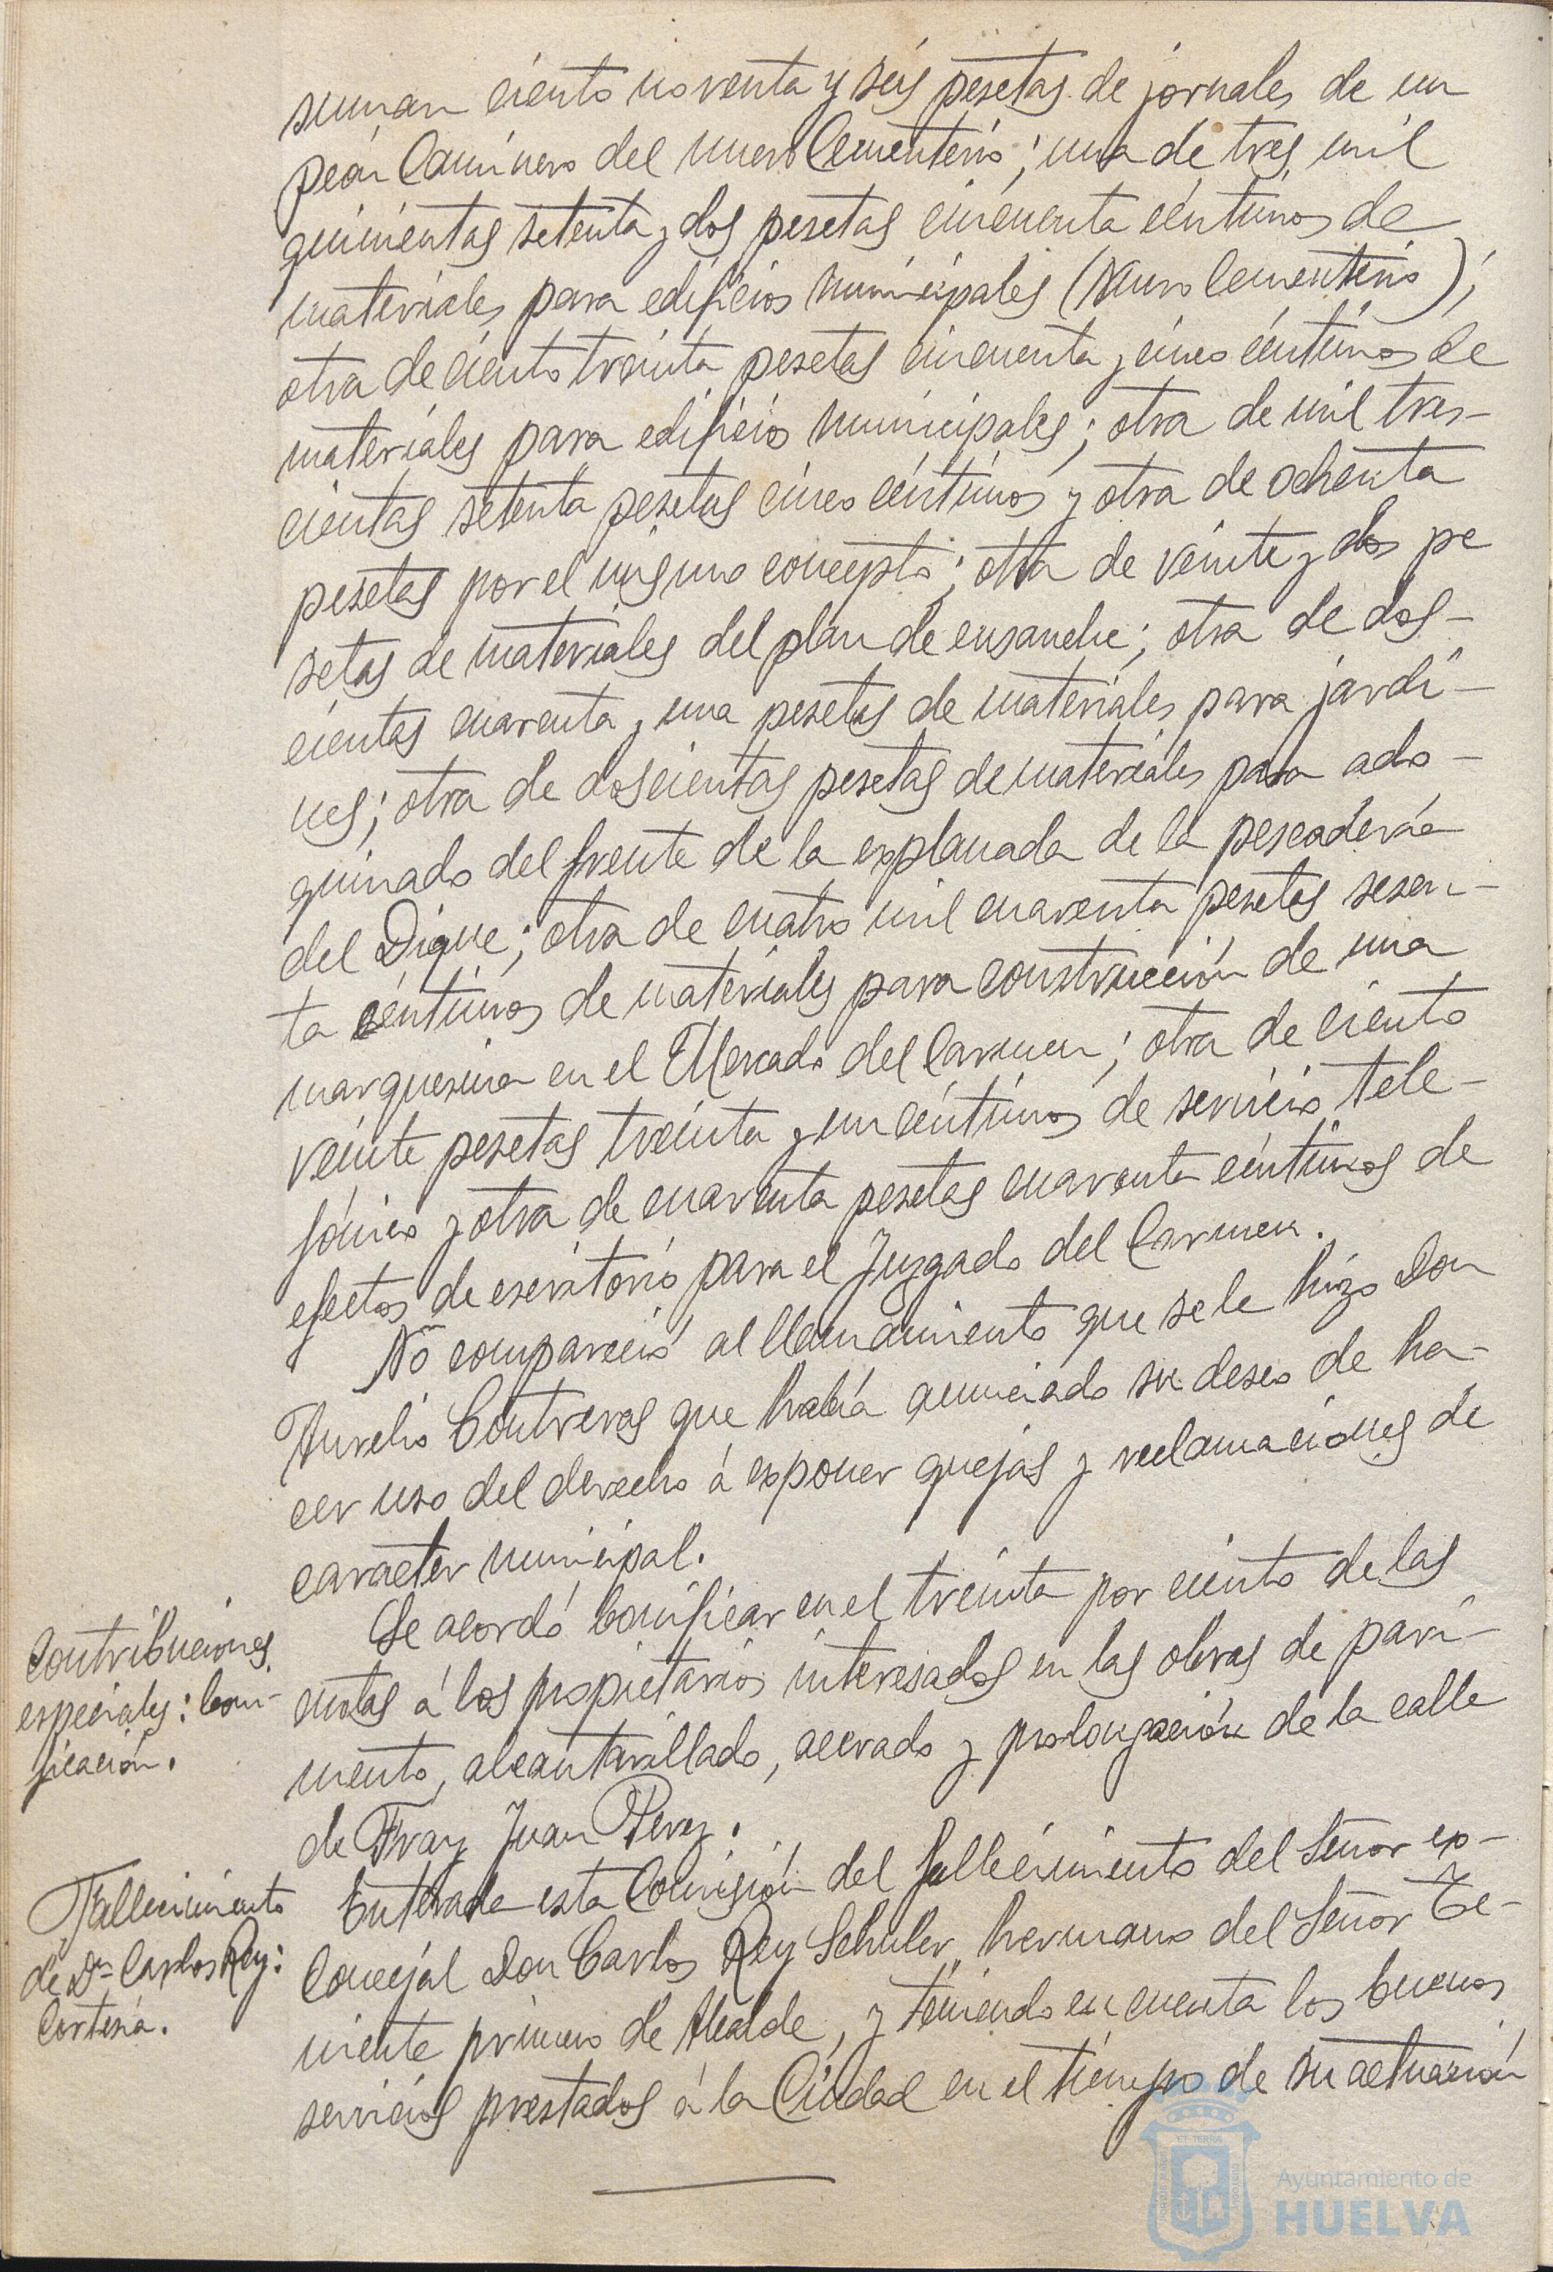 suman ciento noventa y seis pesetas de jornales de un
peón Caminero del nuevo Cementerio; una de tres mil
quinientas setenta y dos pesetas cincuenta céntimos de
materiales para edificios municipales (Muro Cementerio);
otra de ciento treinta pesetas cincuenta y cinco céntimos de
materiales para edificios municipales; otra de mil tres-
cientas setenta pesetas cinco céntimos y otra de ochenta
pesetas por el mismo concepto; otra de veinte y dos pe
setas de materiales del plan de ensanche; otra de dos-
cientas cuarenta y una pesetas de materiales para jardi-
nes; otra de doscientas pesetas de materiales para ado-
quinado del frente de la explanada de la pescadería
del Dique; otra de cuatro mil cuarenta pesetas sesen-
ta céntimos de materiales para construcción de una
marquesina en el Mercado del Carmen; otra de ciento
veinte pesetas treinta y un céntimos de servicio tele-
fónico y otra de cuarenta pesetas cuarenta céntimos de
efectos de escritorio para el Juzgado del Carmen.
No compareció al llamamiento que se le hizo Don
Aurelio Contreras que había anunciado su deseo de ha-
cer uso del derecho á exponer quejas y reclamaciones de
caracter municipal.
Contribuciones
especiales: boni-
ficación.
Se acordó bonificar en el treinta por ciento de las
cuotas á los propietarios interesados en las obras de pavi-
mento, alcantarillado, acerado y prolongación de la calle
de Fray Juan Perez.
Fallecimiento
de Dn Carlos Rey:
Cortesía.
Enterada esta Comisión del fallecimiento del Señor ex-
Concejal Don Carlos Rey Schuler, hermano del Señor Te-
niente primero de Alcalde, y teniendo en cuenta los buenos
servicios prestados á la Ciudad en el tiempo de su actuación
Ayuntamiento de
HUELVA